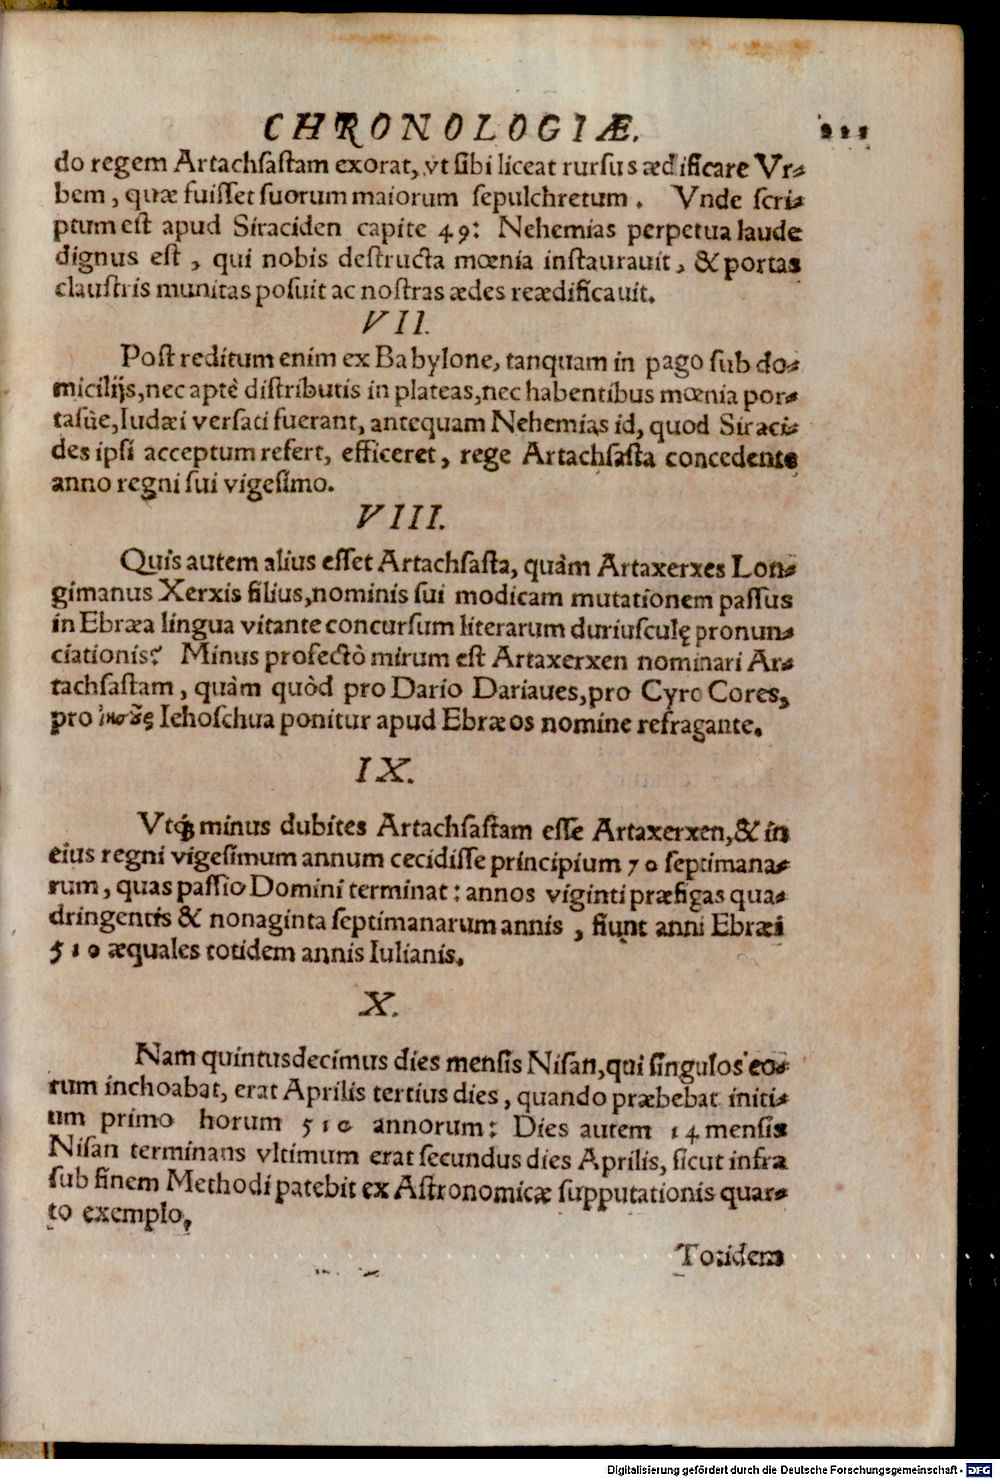 CHRONOLOGIÆ.
do regem Artachsastam exorat, vt sibi liceat rursus ædificare Vr-
bem, quæ fuisset suorum maiorum sepulchretum. Vnde scri-
ptum est apud Siraciden capite 49: Nehemias perpetua laude
dignus est, qui nobis destructa mœnia instaurauit, & portas
claustris munitas posuit ac nostras ædes reædificauit.
VII.
Post reditum enim ex Babylone, tanquam in pago sub do-
micilijs, nec aptè distributis in plateas, nec habentibus mœnia por-
tasùe, Iudæi versati fuerant, antequam Nehemias id, quod Siraci-
des ipsi acceptum refert, efficeret, rege Artachsasta concedente
anno regni sui vigesimo.
VIII.
Quis autem alius esset Artachsasta, quàm Artaxerxes Lon-
gimanus Xerxis filius, nominis sui modicam mutationem passus
in Ebræa lingua vitante concursum literarum duriusculę pronun-
ciationis? Minus profectò mirum est Artaxerxen nominari Ar-
tachsastam, quàm quòd pro Dario Dariaues, pro Cyro Cores,
pro ἰησοῦς Iehoschua ponitur apud Ebræos nomine refragante.
IX.
Vtq́; minus dubites Artachsastam esse Artaxerxen, & in
eius regni vigesimum annum cecidisse principium 70 septimana-
rum, quas passio Domini terminat: annos viginti præfigas qua-
dringentis & nonaginta septimanarum annis, fiunt anni Ebræi
510 æquales totidem annis Iulianis.
X.
Nam quintusdecimus dies mensis Nisan, qui singulos eo-
rum inchoabat, erat Aprilis tertius dies, quando præbebat initi-
um primo horum 510 annorum: Dies autem 14 mensis
Nisan terminans vltimum erat secundus dies Aprilis, sicut infra
sub finem Methodi patebit ex Astronomicæ supputationis quar-
to exemplo,
Totidem
Digitalisierung gefördert durch die Deutsche Forschungsgemeinschaft - DFG